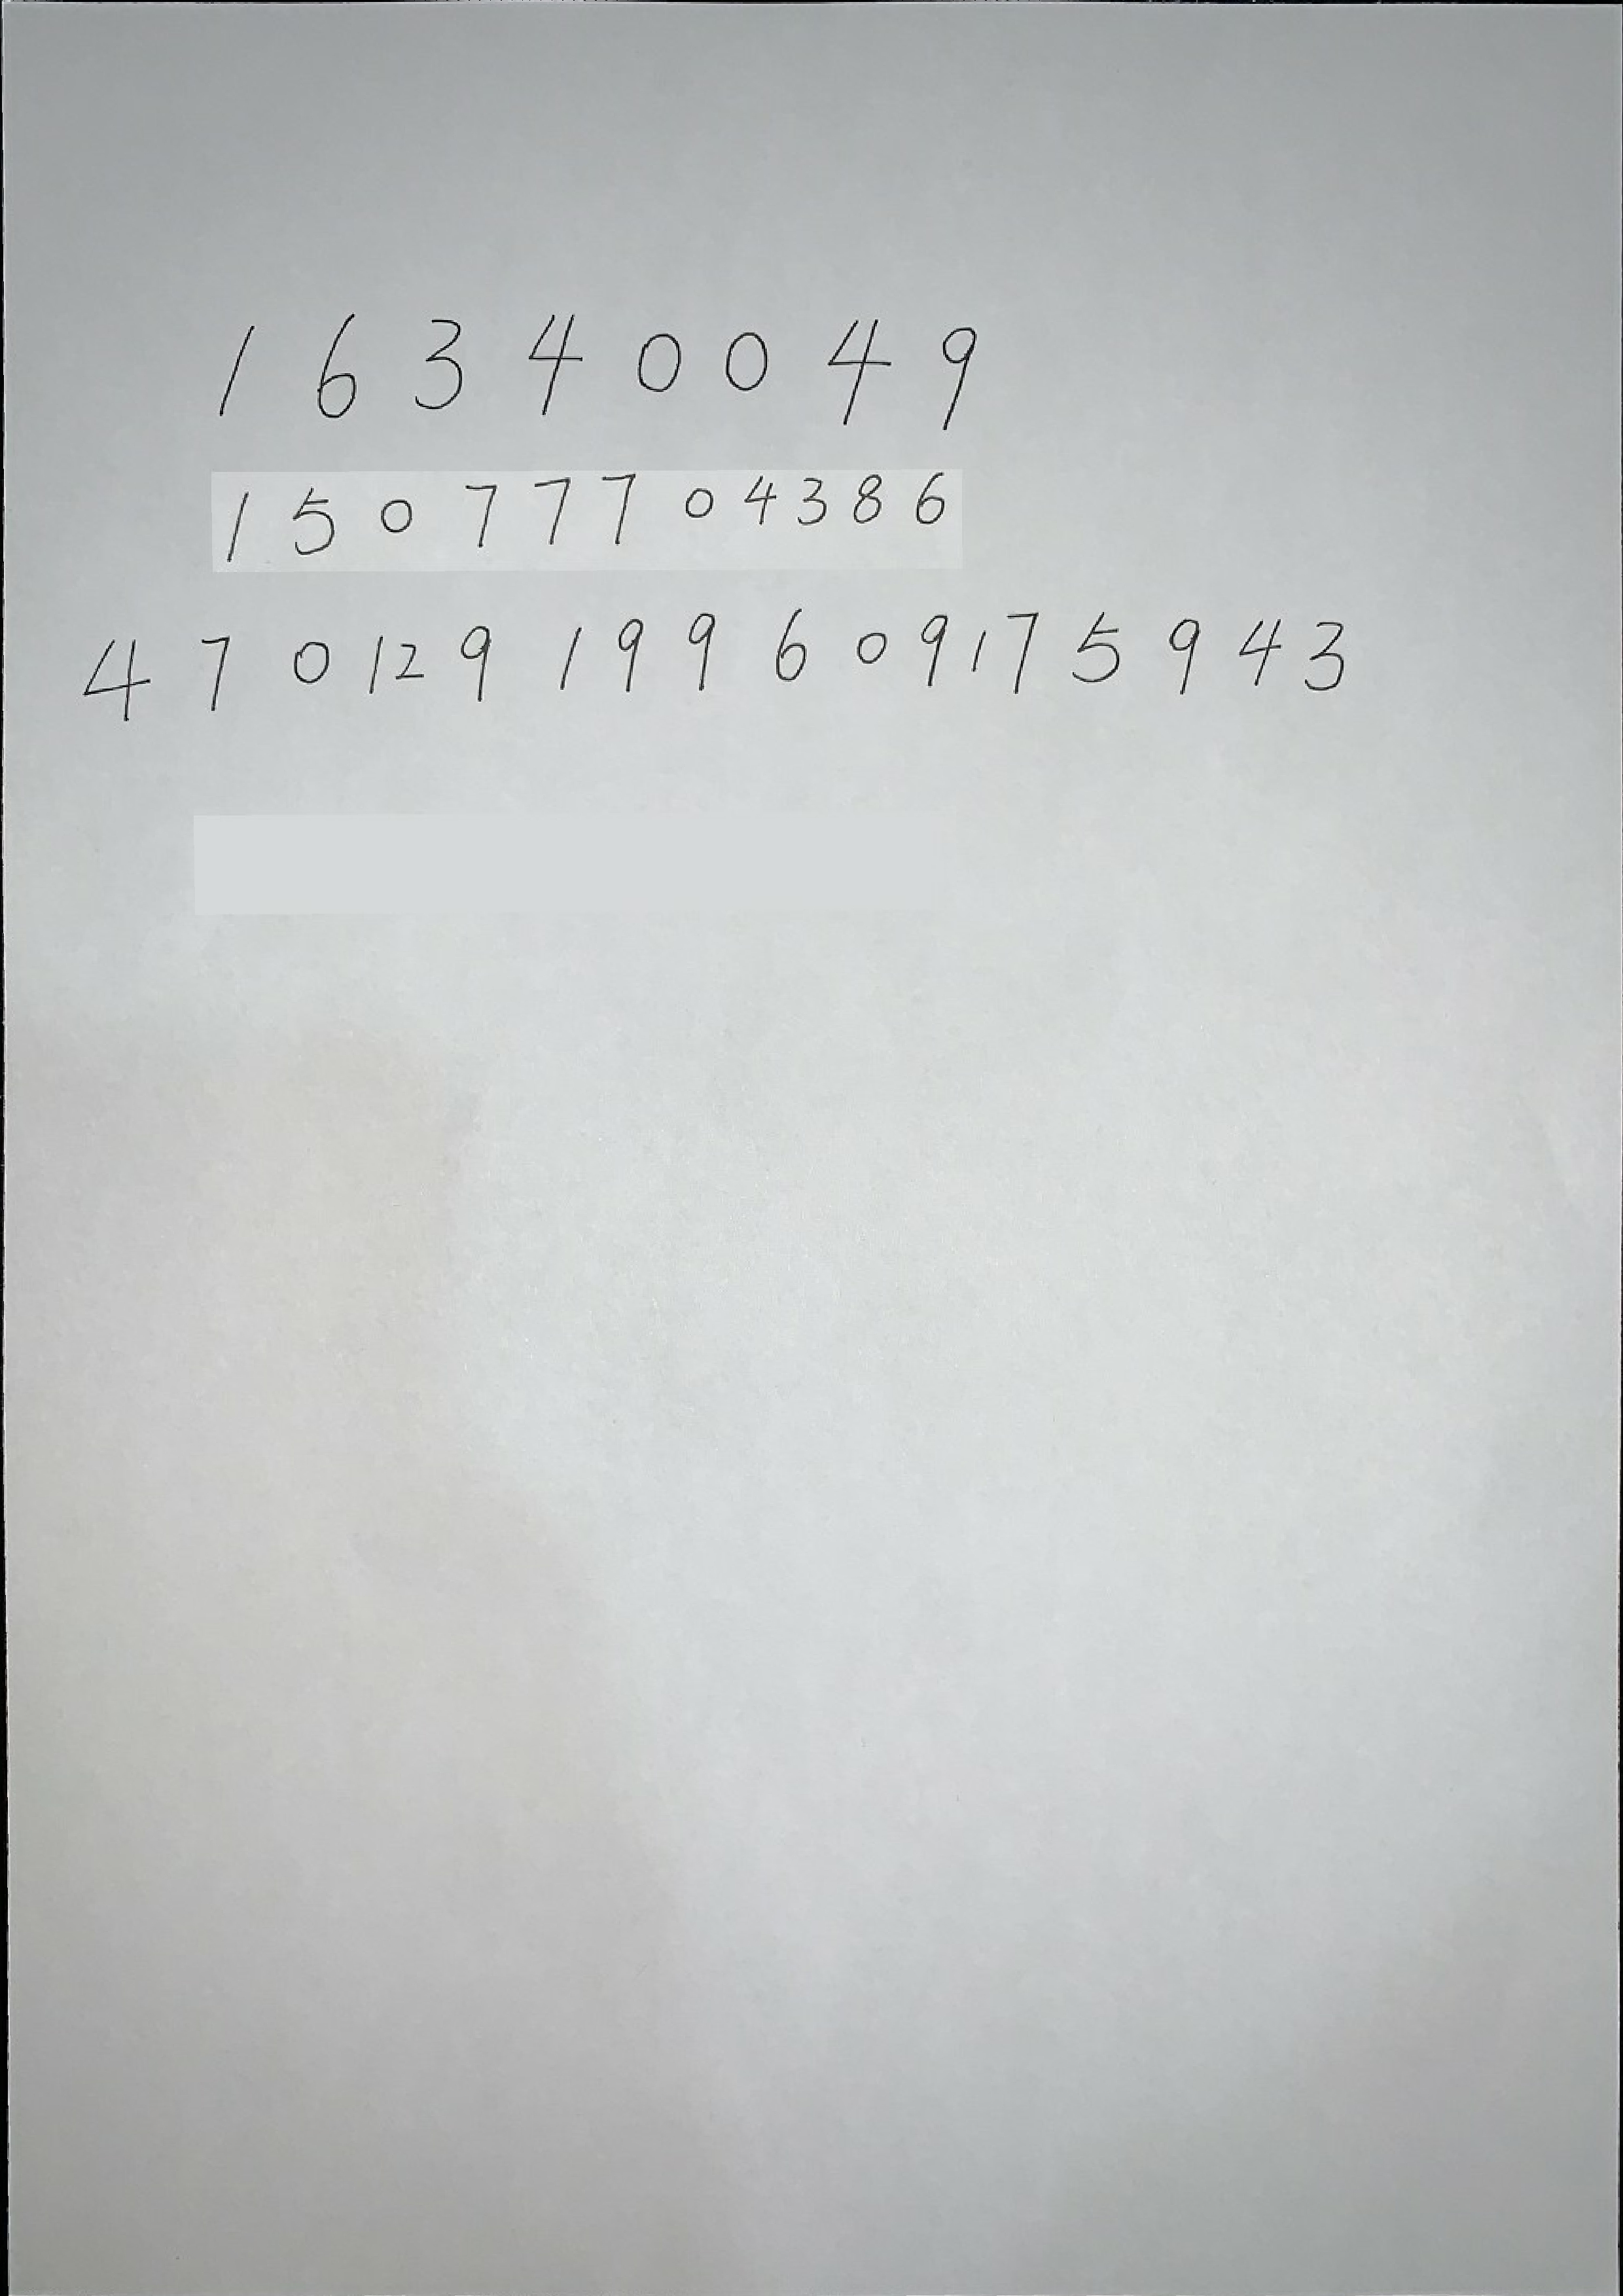 16340049
15077704386
470129199609175943